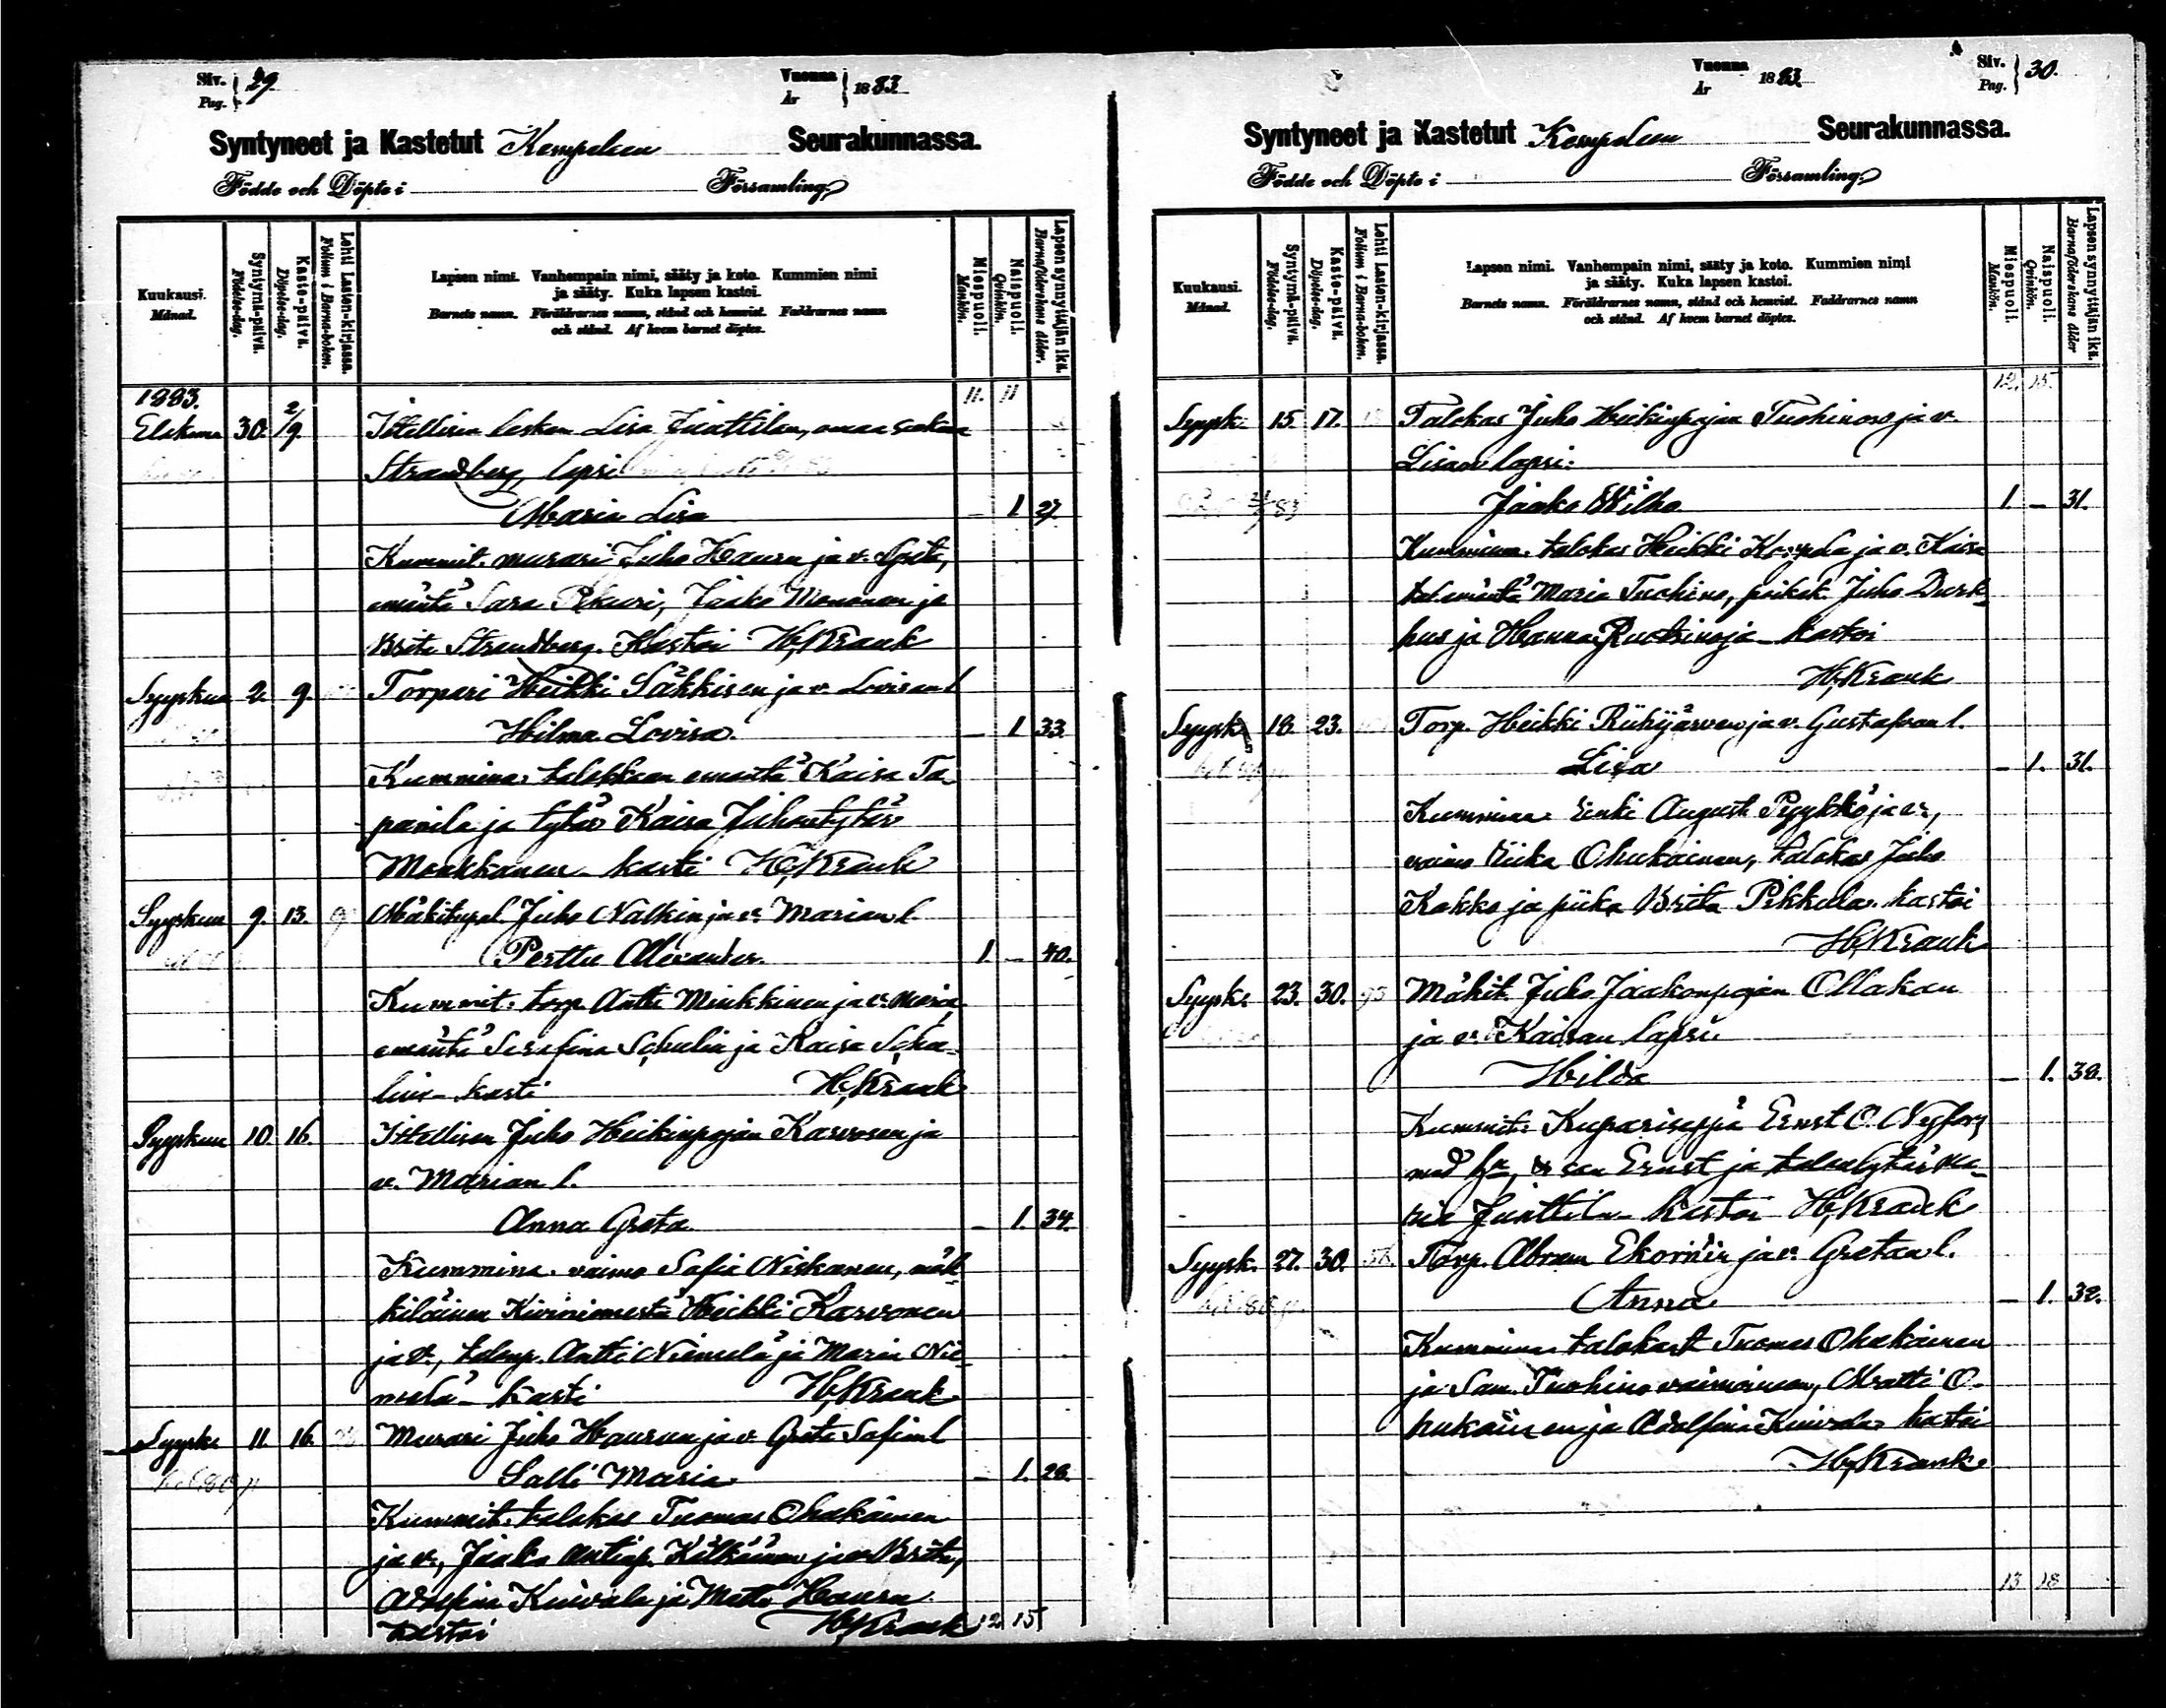 Siv. Pag. 29
Vuonna År 1883
Syntyneet ja Kastetut Kempeleen Seurakunnassa.
Födde och Döpte i Församling.
Kuukausi. Månad.
Syntymä-päivä. Födelse-dag.
Kaste-päivä. Döpelse-dag.
Lehti Lasten-kirjassa. Folium i Barna-boken.
Lapsen nimi. Vanhempain nimi, sääty ja koto. Kummien nimi
ja sääty. Kuka lapsen kastoi.
Barnets namn. Föräldrarnes namn, stånd och hemvist. Faddrarnes namn
och stånd. Af hvem barnet döptes.
Miespuoli. Mankön.
Naispuoli. Qvinkön.
Lapsen synnyttäjän ikä. Barnaföderskans ålder.
1883. 11. 11
Elokuu 30. 2/9. Itsellisen lesken Lisa Junttilan, omaa sukua
Strandberg, lapsi
Maria Lisa - 1 27
Kummit. murari Juho Hauru ja v.
emäntä Sara Pekuri, Jaako Mononen ja
Brita Strandberg. Kastoi H. Krank
Syyskuu 2. 9. Torpari Heikki Säkkisen ja v. Lovisan l
Hilma Lovisa. - 1 33.
Kummina: talokkaan emäntä Kaisa Ta-
panila ja tytär Kaisa Juhontytär
Monkkanen kasti H. Krank
Syyskuu 9. 13. 9 Mäkitupal Juho Nälkin ja v. Marian l.
Perttu Alexander. 1. - 40.
Kummit: torp. Antti Minkkinen ja v. Maria,
emäntä Serafina Schulin ja Kaisa Schu-
lin - kasti H. Krank
Syyskuu 10. 16. Itsellisen Juho Heikinpojan Karvosen ja
v. Marian l.
Anna Greta - 1. 34.
Kummina. vaimo Safia Niskanen, mäk-
kiläinen Kiviniemestä Heikki Karvonen
ja v., talonp. Antti Niemelä ja Maria Nie-
melä - kasti H. Krank.
Syysk. 11. 16. Murari Juho Haurun ja v. Greta Safian l
Salli Maria - 1. 28.
Kummit. talokas Tuomas Ohukainen
ja v., Jaako Antinp. ja v. Brita,
Adolfina Kuivala ja Matti Hauru
kastoi H. Krank 12. 15
Vuonna År 1883
Siv. Pag. 30.
Syntyneet ja Kastetut Kempeleen Seurakunnassa.
Födde och Döpte i Församling.
Kuukausi. Månad.
Syntymä-päivä. Födelse-dag.
Kaste-päivä. Döpelse-dag.
Lehti Lasten-kirjassa. Folium i Barna-boken.
Lapsen nimi. Vanhempain nimi, sääty ja koto. Kummien nimi
ja sääty. Kuka lapsen kastoi.
Barnets namn. Föräldrarnes namn, stånd och hemvist. Faddrarnes namn
och stånd. Af hvem barnet döptes.
Miespuoli. Mankön.
Naispuoli. Qvinkön.
Lapsen synnyttäjän ikä. Barnaföderskans ålder
12. 15.
Syysk. 15. 17. Talokas Juho Heikinpojan Tuohinon ja v.
Lisan lapsi:
Jaako Wilho 1. - 31.
Kummina. talokas Heikki ja v. Kaisa
tal. emäntä Maria Tuohino, poikak. Juho Durk-
hus ja Hanna Ruotsinoja - kastoi
H. Krank
Syysk. 18. 23. Torp. Heikki Riihijärven ja v. Gustafvan l.
Lisa - 1. 31.
Kummina. Renki August Pyykkö ja v.,
vaimo Ohukainen, talokas Juho
Kokko ja piika Brita Pikkula. kastoi
H. Krank
Syysk. 23. 30. Mäkit. Juho Jaakonpojan Ollakan
ja v. Kaisan lapsi
Hilda - 1. 32.
Kummit: Kupariseppä Ernst O. Nyfors
med ja talontytär Ma-
ria Junttila - kastoi H. Krank
Syysk. 27. 30. 58. Torp. Abram Ekornin ja v. Gretan l.
Anna - 1. 32.
Kummina talokast Tuomas Ohukainen
ja Sam. Tuohino vaimoineen, Matti O-
hukainen ja Adolfina Kuivala kastoi
H. Krank
13 18